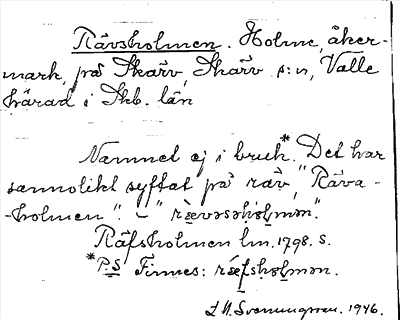 Rävsholmen. Holme, åker-
mark, på Skärv, Skärv s:n, Valle
härad i Skb. län
Namnet ej i bruk.* Det har
sannolikt syftat på räv, "Räva-
-holmen". – "rævəsəholmən."
Räfsholmen lm. 1798. s.
*P.S Finnes: ræfsholmən.
1946.